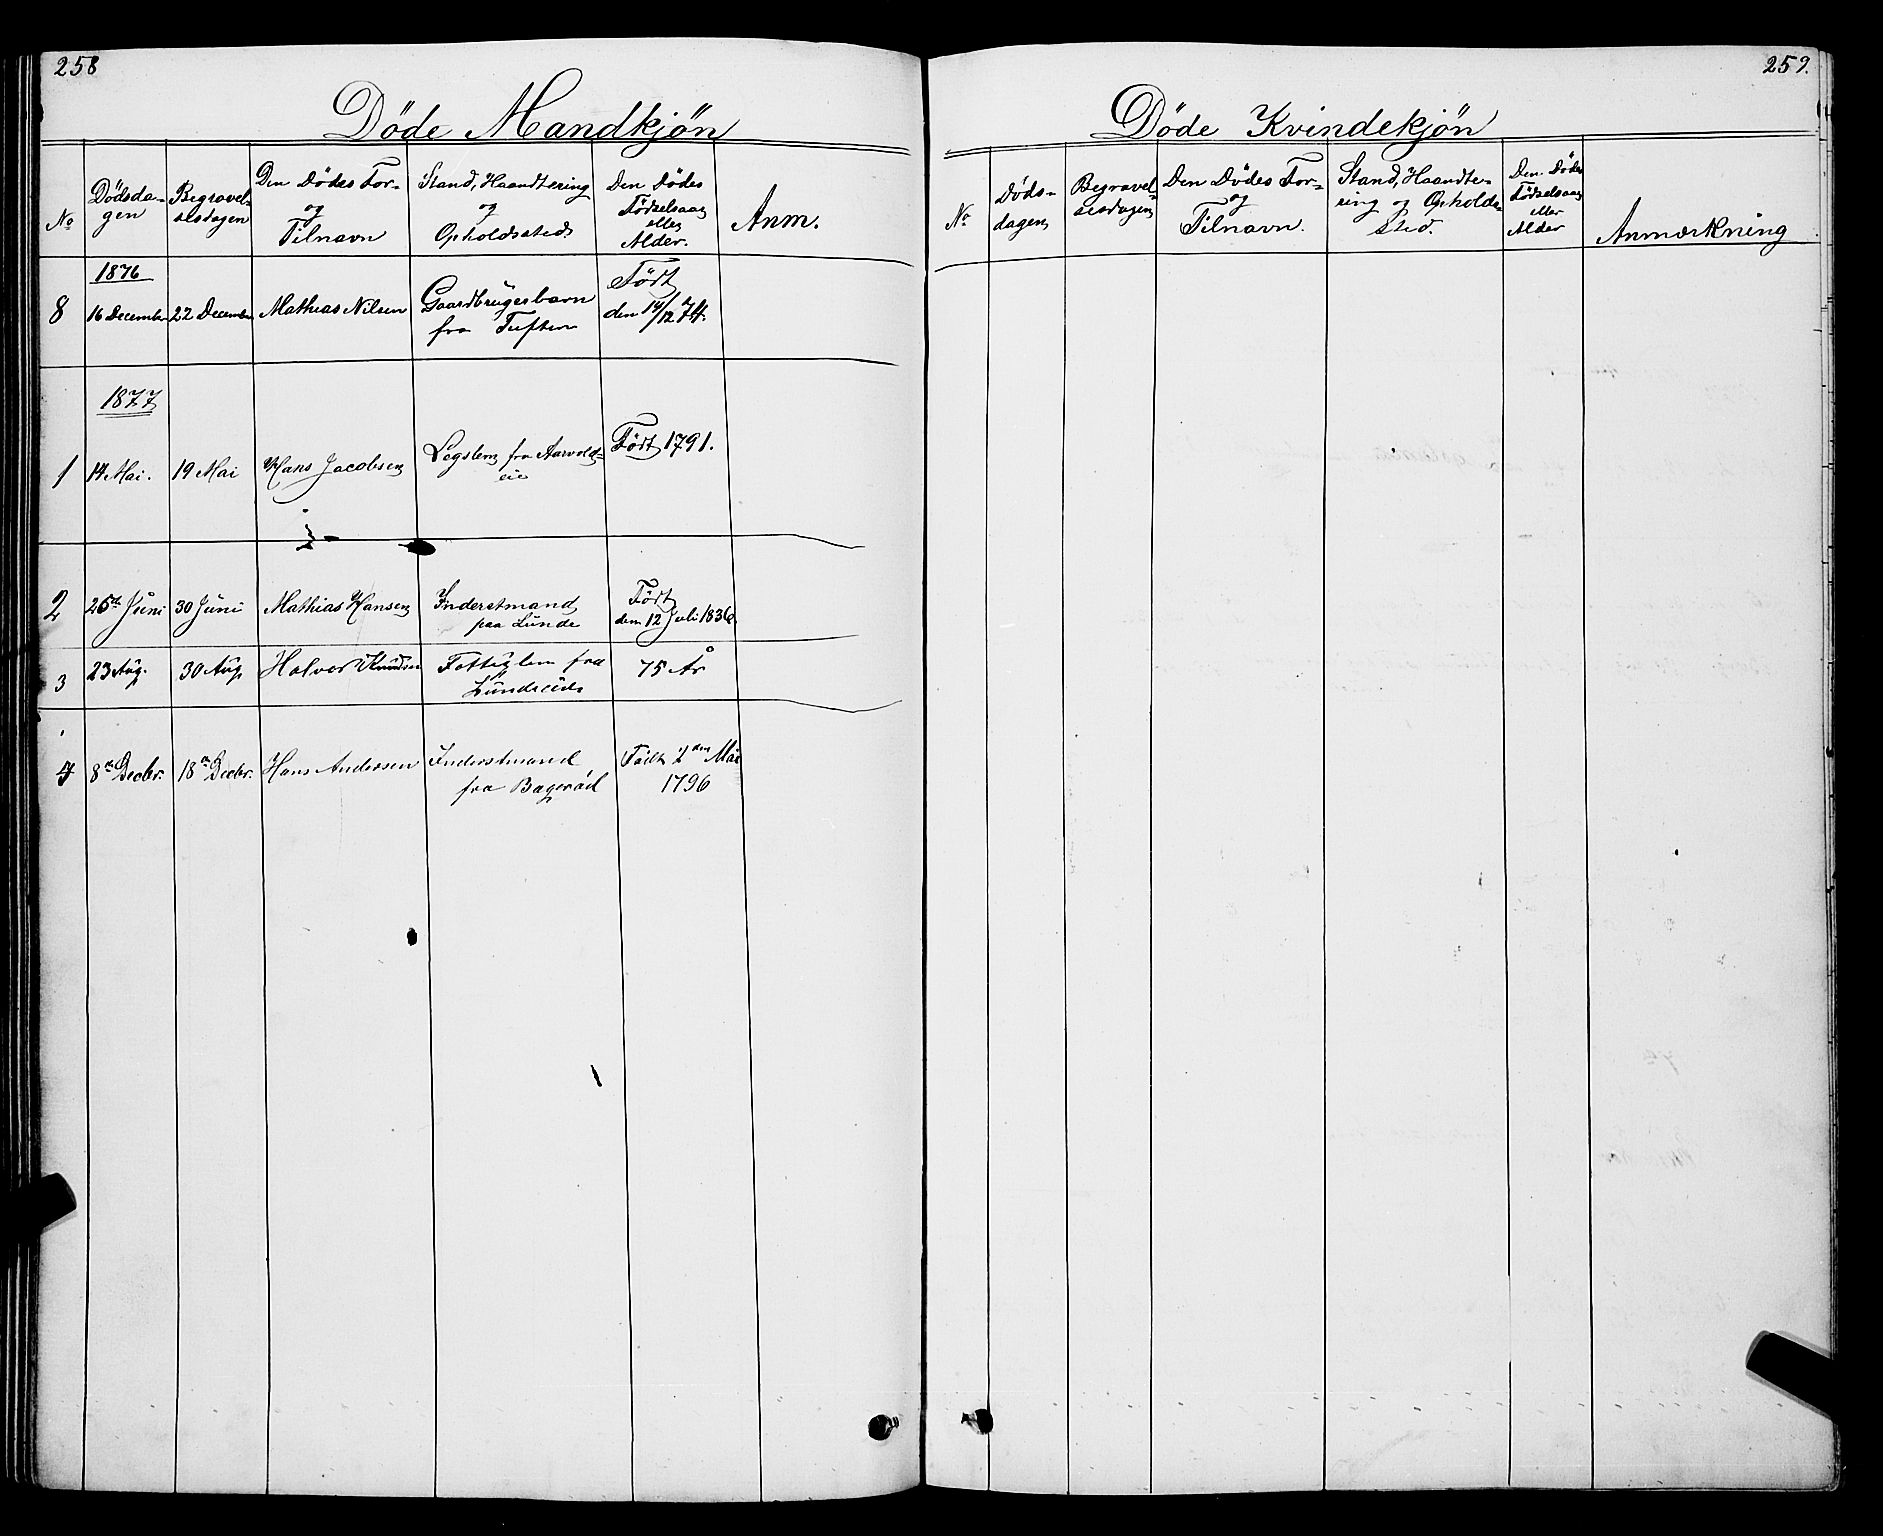 258
Döde Mandkjön
No
Dödsda-
gen
Begravel-
sesdagen
Den Dödes For-
og
Tilnavn
Stand, Haandtering
og
Opholdssted
Den Dödes
Födselsaar
eller
Alder.
Anm.
1876
8 16 December 22 December Mathias Nilsen Gaardbrugerbarn
fra Tuften
Födt
den 14/12 74.
1877
1 14 Mai. 19 Mai Hans Jacobsen Legslem fra Aarvold-
eie
Födt 1791.
2 25de Juni 30 Juni Mathias Hansen Inderstmand
paa Lunde
Födt
den 12 Juli 1836
3 23 Aug. 30 Aug Halvor Knudsen Fattiglem fra
75 År
4 8n Decbr. 18n Decbr. Hans Andersen Inderstmand
fra Bageröd
Födt 2den Mai
1796
259.
Döde Kvindekjön
No
Döds-
dagen
Begravel-
sesdagen
Den Dödes For-
og
Tilnavn.
Stand, Haandte-
ring og Opholds-
sted.
Den Dödes
Födselsaar
eller
Alder
Anmærkning